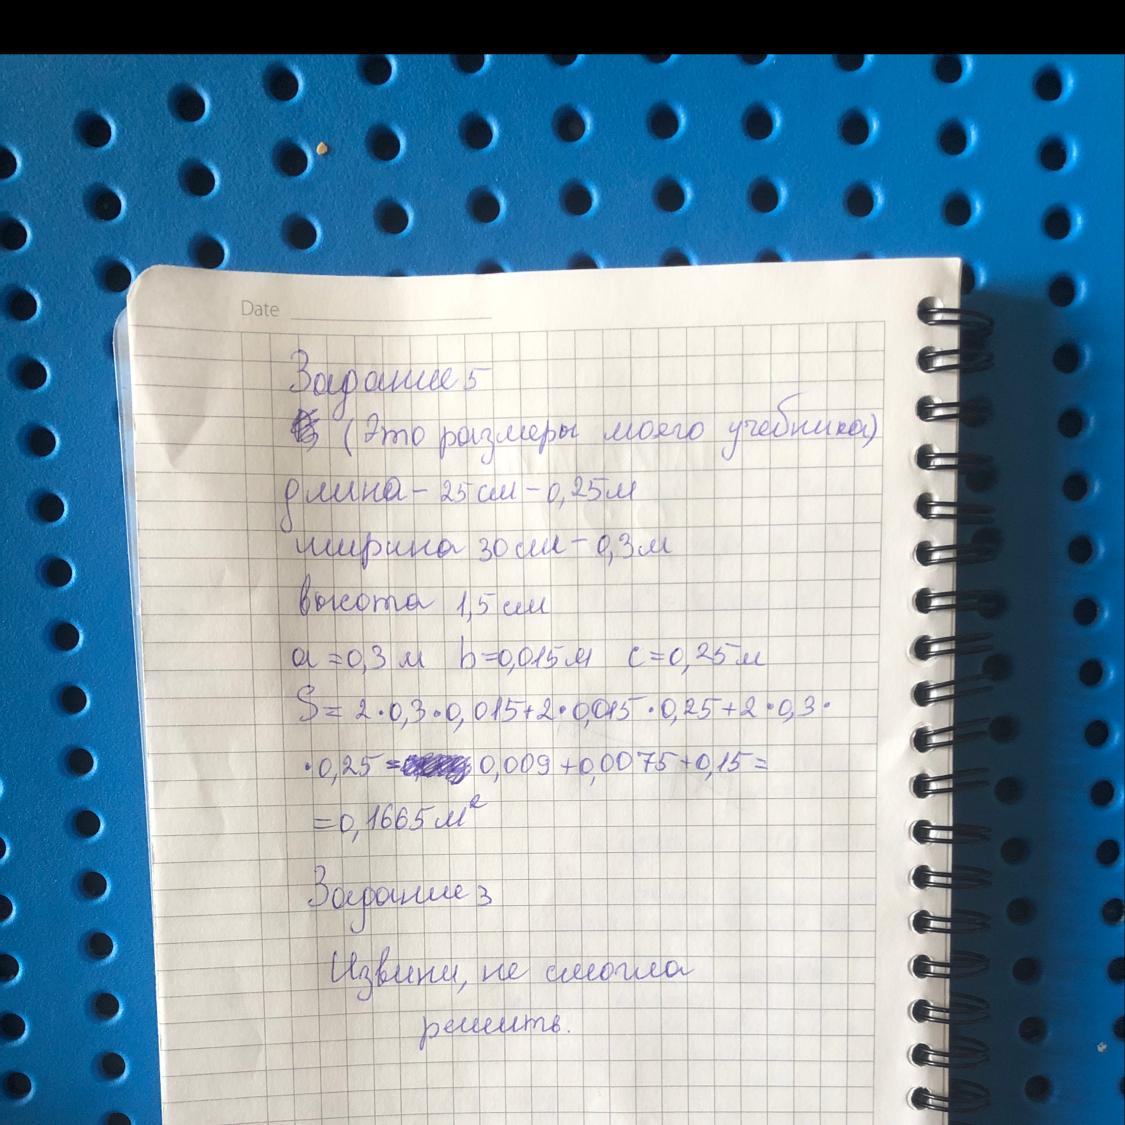 Date
Задание 5
(Это размеры моего учебника)
длина - 25 см - 0,25 м
ширина 30 см - 0,3 м
высота 1,5 см
a = 0,3 м b = 0,015 м c = 0,25 м
S = 2 · 0,3 · 0,015 + 2 · 0,015 · 0,25 + 2 · 0,3 ·
· 0,25 = 0,009 + 0,0075 + 0,15 =
= 0,1665 м²
Задание 3
Извини, не смогла
решить.